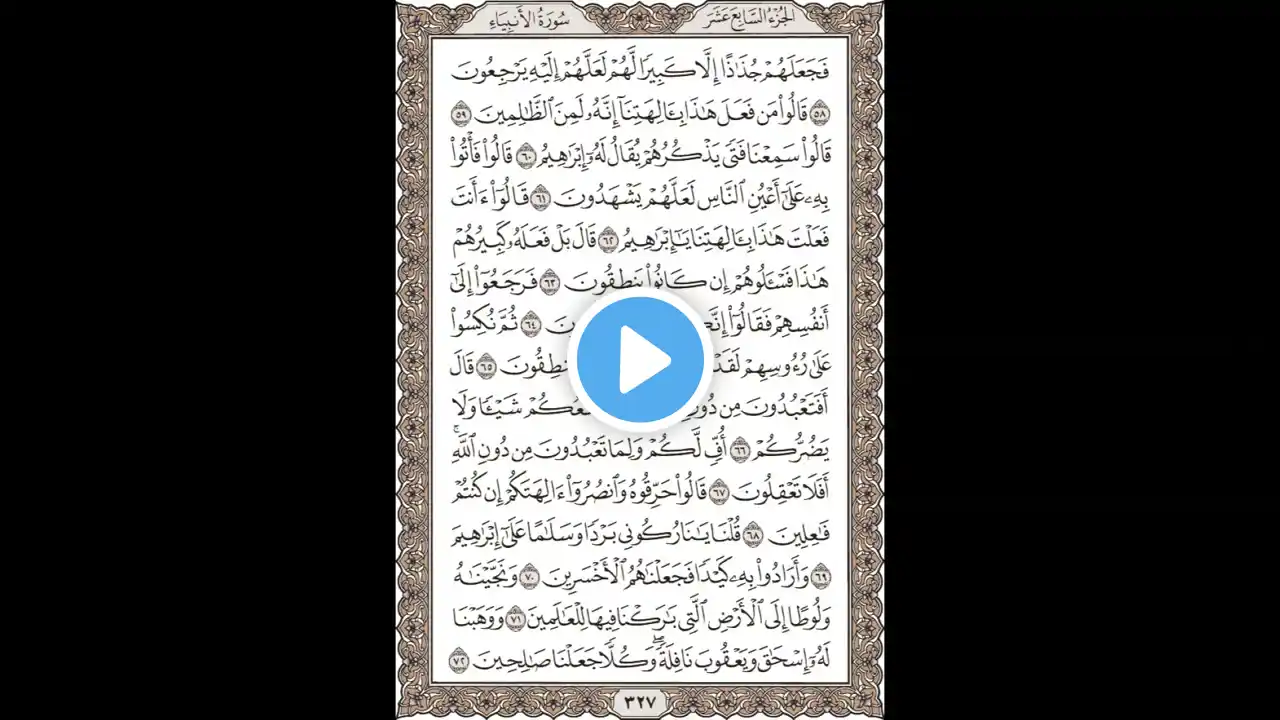 الجزء السابع عشر
سورة الأنبياء
فَجَعَلَهُمْ جُذَٰذًا إِلَّا كَبِيرًا لَّهُمْ لَعَلَّهُمْ إِلَيْهِ يَرْجِعُونَ
٥٨ قَالُوا۟ مَن فَعَلَ هَٰذَا بِـَٔالِهَتِنَآ إِنَّهُۥ لَمِنَ ٱلظَّٰلِمِينَ ٥٩
قَالُوا۟ سَمِعْنَا فَتًى يَذْكُرُهُمْ يُقَالُ لَهُۥٓ إِبْرَٰهِيمُ ٦٠ قَالُوا۟ فَأْتُوا۟
بِهِۦ عَلَىٰٓ أَعْيُنِ ٱلنَّاسِ لَعَلَّهُمْ يَشْهَدُونَ ٦١ قَالُوٓا۟ ءَأَنتَ
فَعَلْتَ هَٰذَا بِـَٔالِهَتِنَا يَٰٓإِبْرَٰهِيمُ ٦٢ قَالَ بَلْ فَعَلَهُۥ كَبِيرُهُمْ
هَٰذَا فَسْـَٔلُوهُمْ إِن كَانُوا۟ يَنطِقُونَ ٦٣ فَرَجَعُوٓا۟ إِلَىٰٓ
أَنفُسِهِمْ فَقَالُوٓا۟ ٦٤ ثُمَّ نُكِسُوا۟
عَلَىٰ رُءُوسِهِمْ يَنطِقُونَ ٦٥ قَالَ
أَفَتَعْبُدُونَ مِن شَيْـًٔا وَلَا
يَضُرُّكُمْ ٦٦ أُفٍّ لَّكُمْ وَلِمَا تَعْبُدُونَ مِن دُونِ ٱللَّهِ ۖ
أَفَلَا تَعْقِلُونَ ٦٧ قَالُوا۟ حَرِّقُوهُ وَٱنصُرُوٓا۟ ءَالِهَتَكُمْ إِن كُنتُمْ
فَٰعِلِينَ ٦٨ قُلْنَا يَٰنَارُ كُونِى بَرْدًا وَسَلَٰمًا عَلَىٰٓ إِبْرَٰهِيمَ
٦٩ وَأَرَادُوا۟ بِهِۦ كَيْدًا فَجَعَلْنَٰهُمُ ٱلْأَخْسَرِينَ ٧٠ وَنَجَّيْنَٰهُ
وَلُوطًا إِلَى ٱلْأَرْضِ ٱلَّتِى بَٰرَكْنَا فِيهَا لِلْعَٰلَمِينَ ٧١ وَوَهَبْنَا
لَهُۥٓ إِسْحَٰقَ وَيَعْقُوبَ نَافِلَةً ۖ وَكُلًّا جَعَلْنَا صَٰلِحِينَ ٧٢
٣٢٧